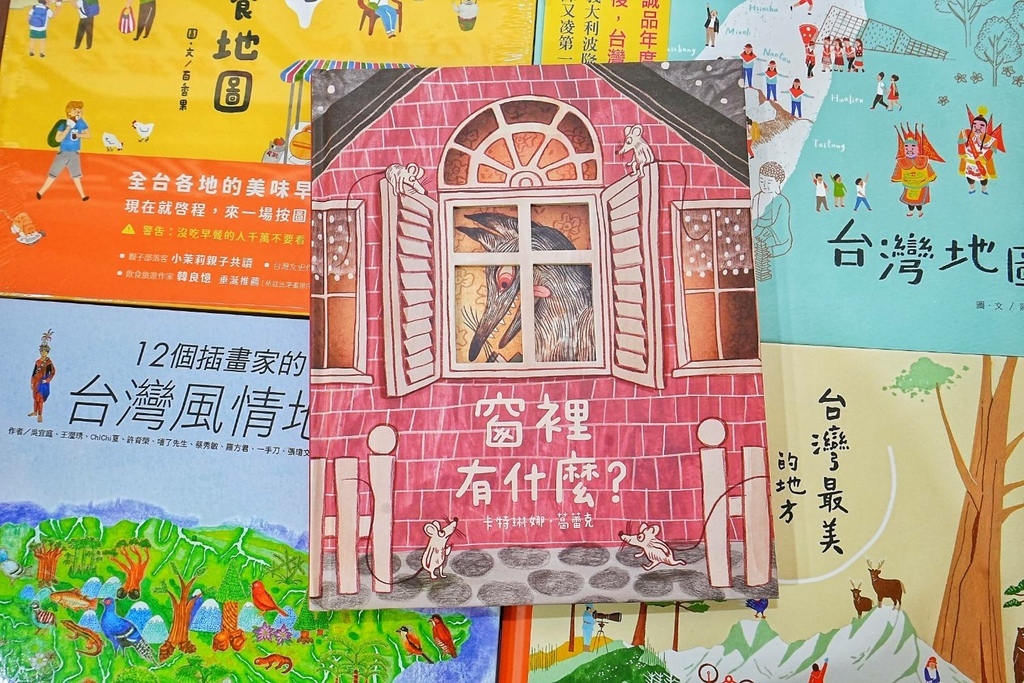 食地圖
圖・文／百香果
全台各地的美味早
現在就啓程，來一場按圖
警告：沒吃早餐的人千萬不要看
親子部落客 小茉莉親子共讀
台灣文史
飲食旅遊作家 韓良憶 垂涎推薦
誠品年度
後，台灣
義大利波隆
又凌第一
Hsinchu
Miaoli
Nantou
Hualien
Taitung
台灣地圖
圖・文／
12個插畫家的
台灣風情地
作者／吳宜庭、王瀅琇、ChiChi夏、許育榮、嗜了先生、蔡秀敏、羅方君、一手刀、張瓊文
窗裡
有什麼?
卡特琳娜・葛蕾克
台灣最美
的地方